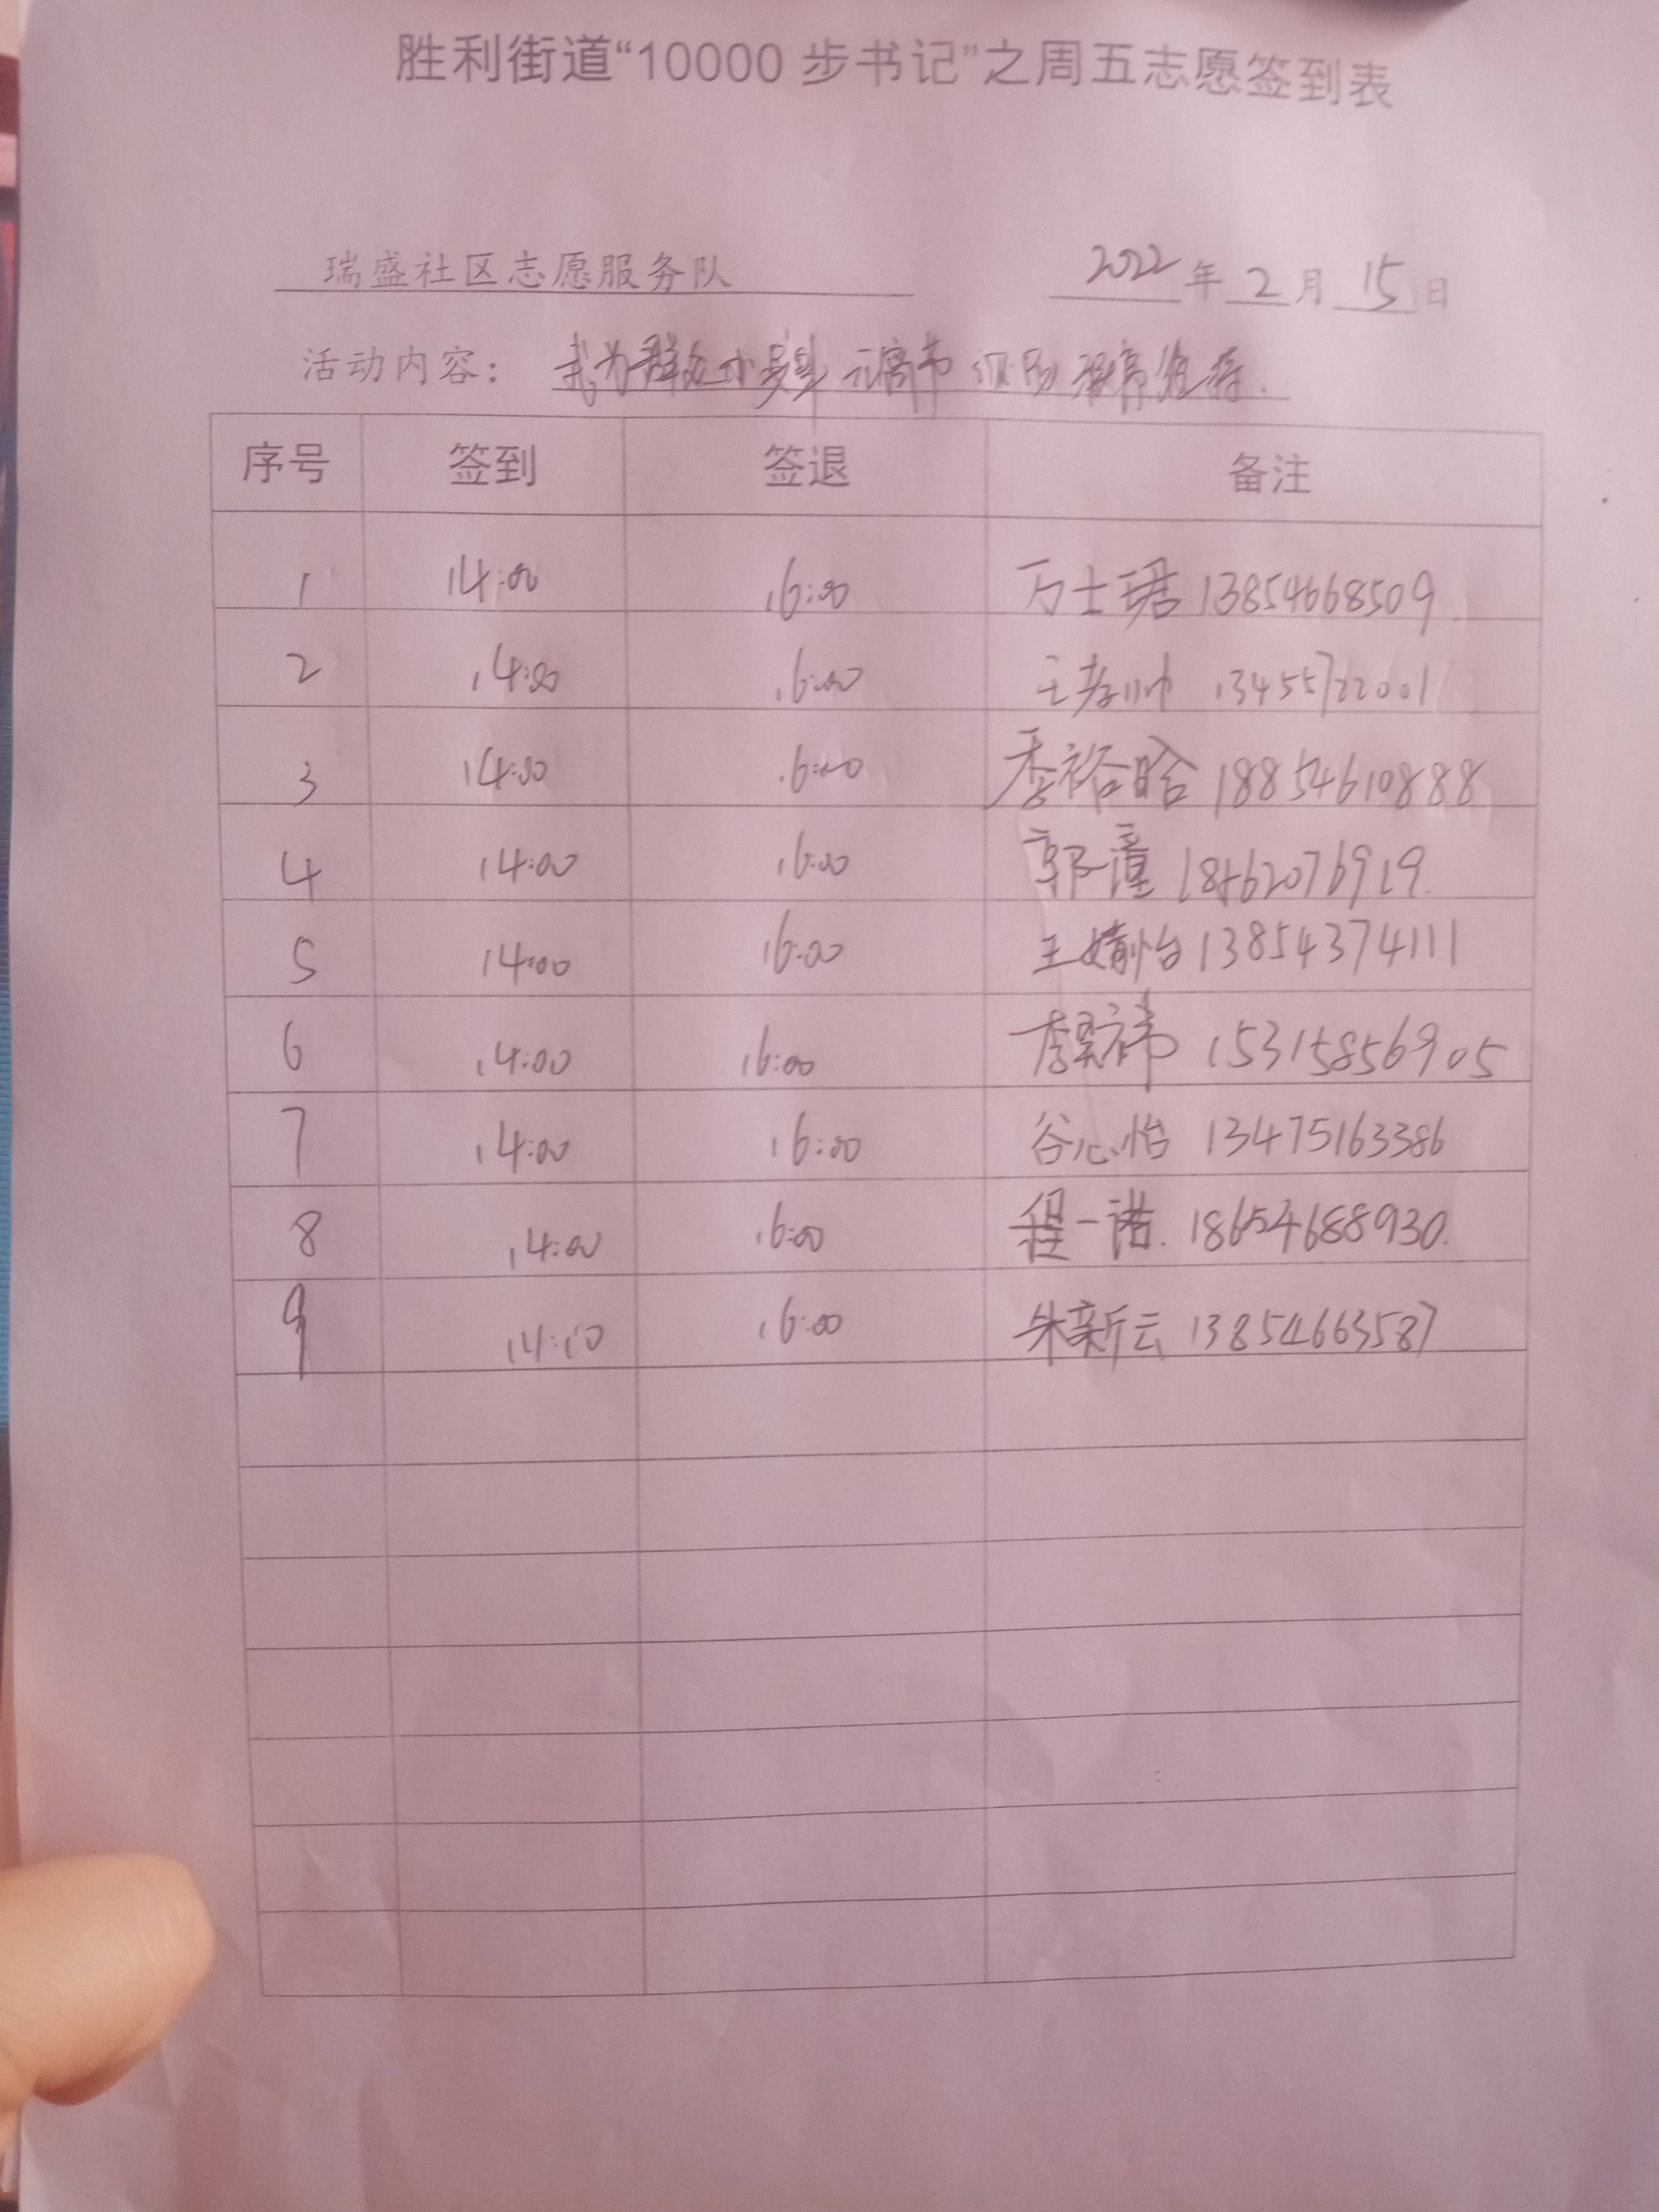 胜利街道“10000 步书记”之周五志愿签到表
瑞盛社区志愿服务队 2022 年 2 月 15 日
活动内容： 我为群众办实事 元宵节
序号 签到 签退 备注
1 14:00 16:00 万士珺 13854668509
2 14:00 16:00 王孝帅 13455722001
3 14:00 16:00 季裕晗 18854610888
4 14:00 16:00 郭潼 18562076919.
5 14:00 16:00 王婧怡 13854374111
6 14:00 16:00 15315856905
7 14:00 16:00 谷心怡 13475163386
8 14:00 16:00 程一诺. 18654688930.
9 14:00 16:00 朱新云 13854663587